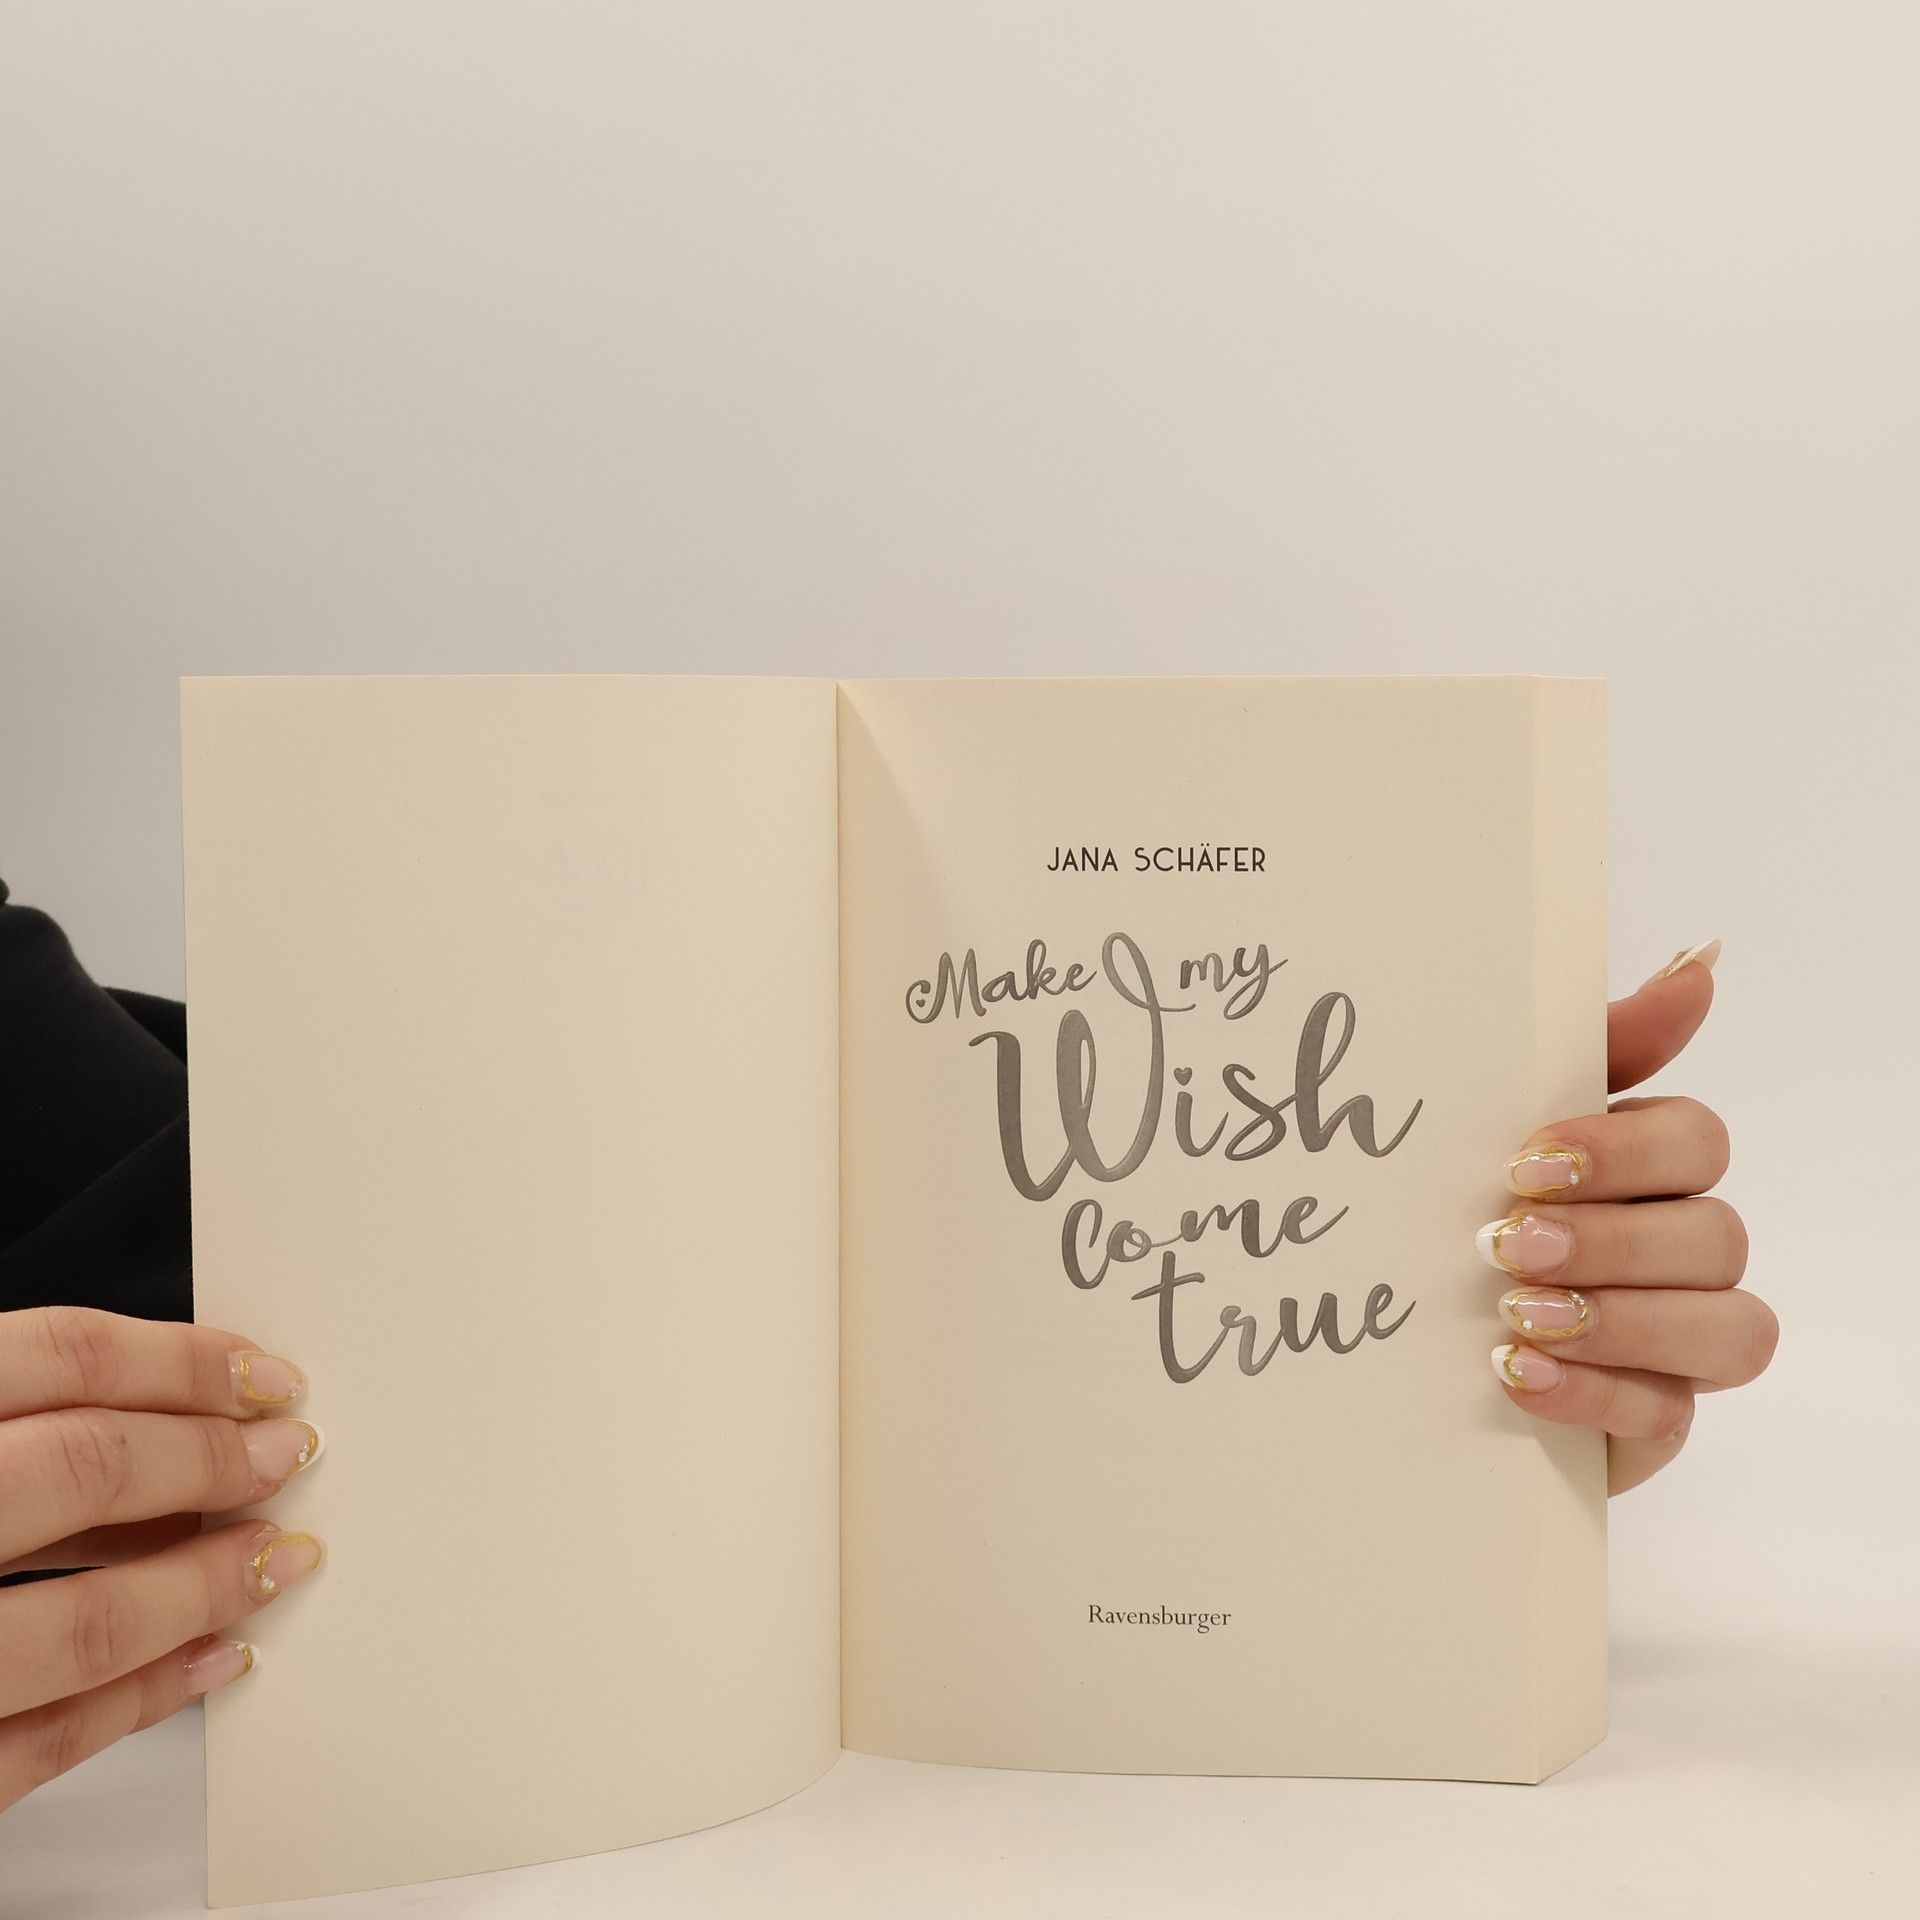 JANA SCHÄFER
Make my
Wish
come
true
Ravensburger